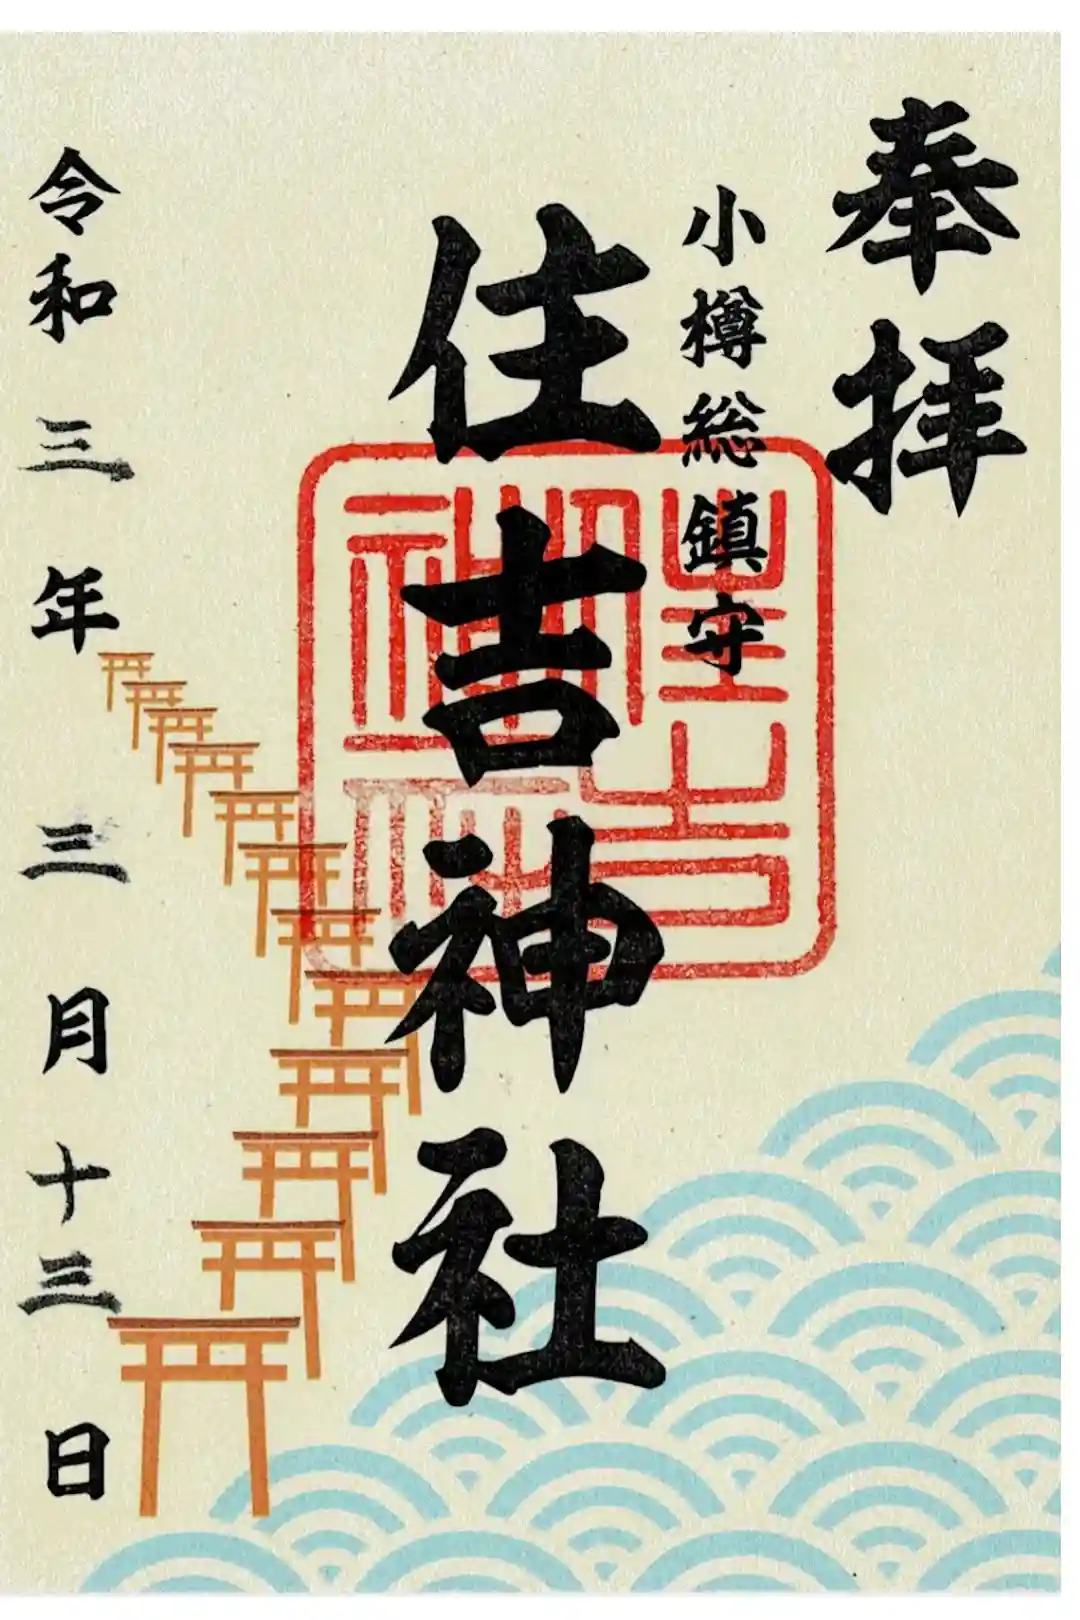 奉拝
小樽総鎮守
住吉神社
住吉神社
令和三年三月十三日